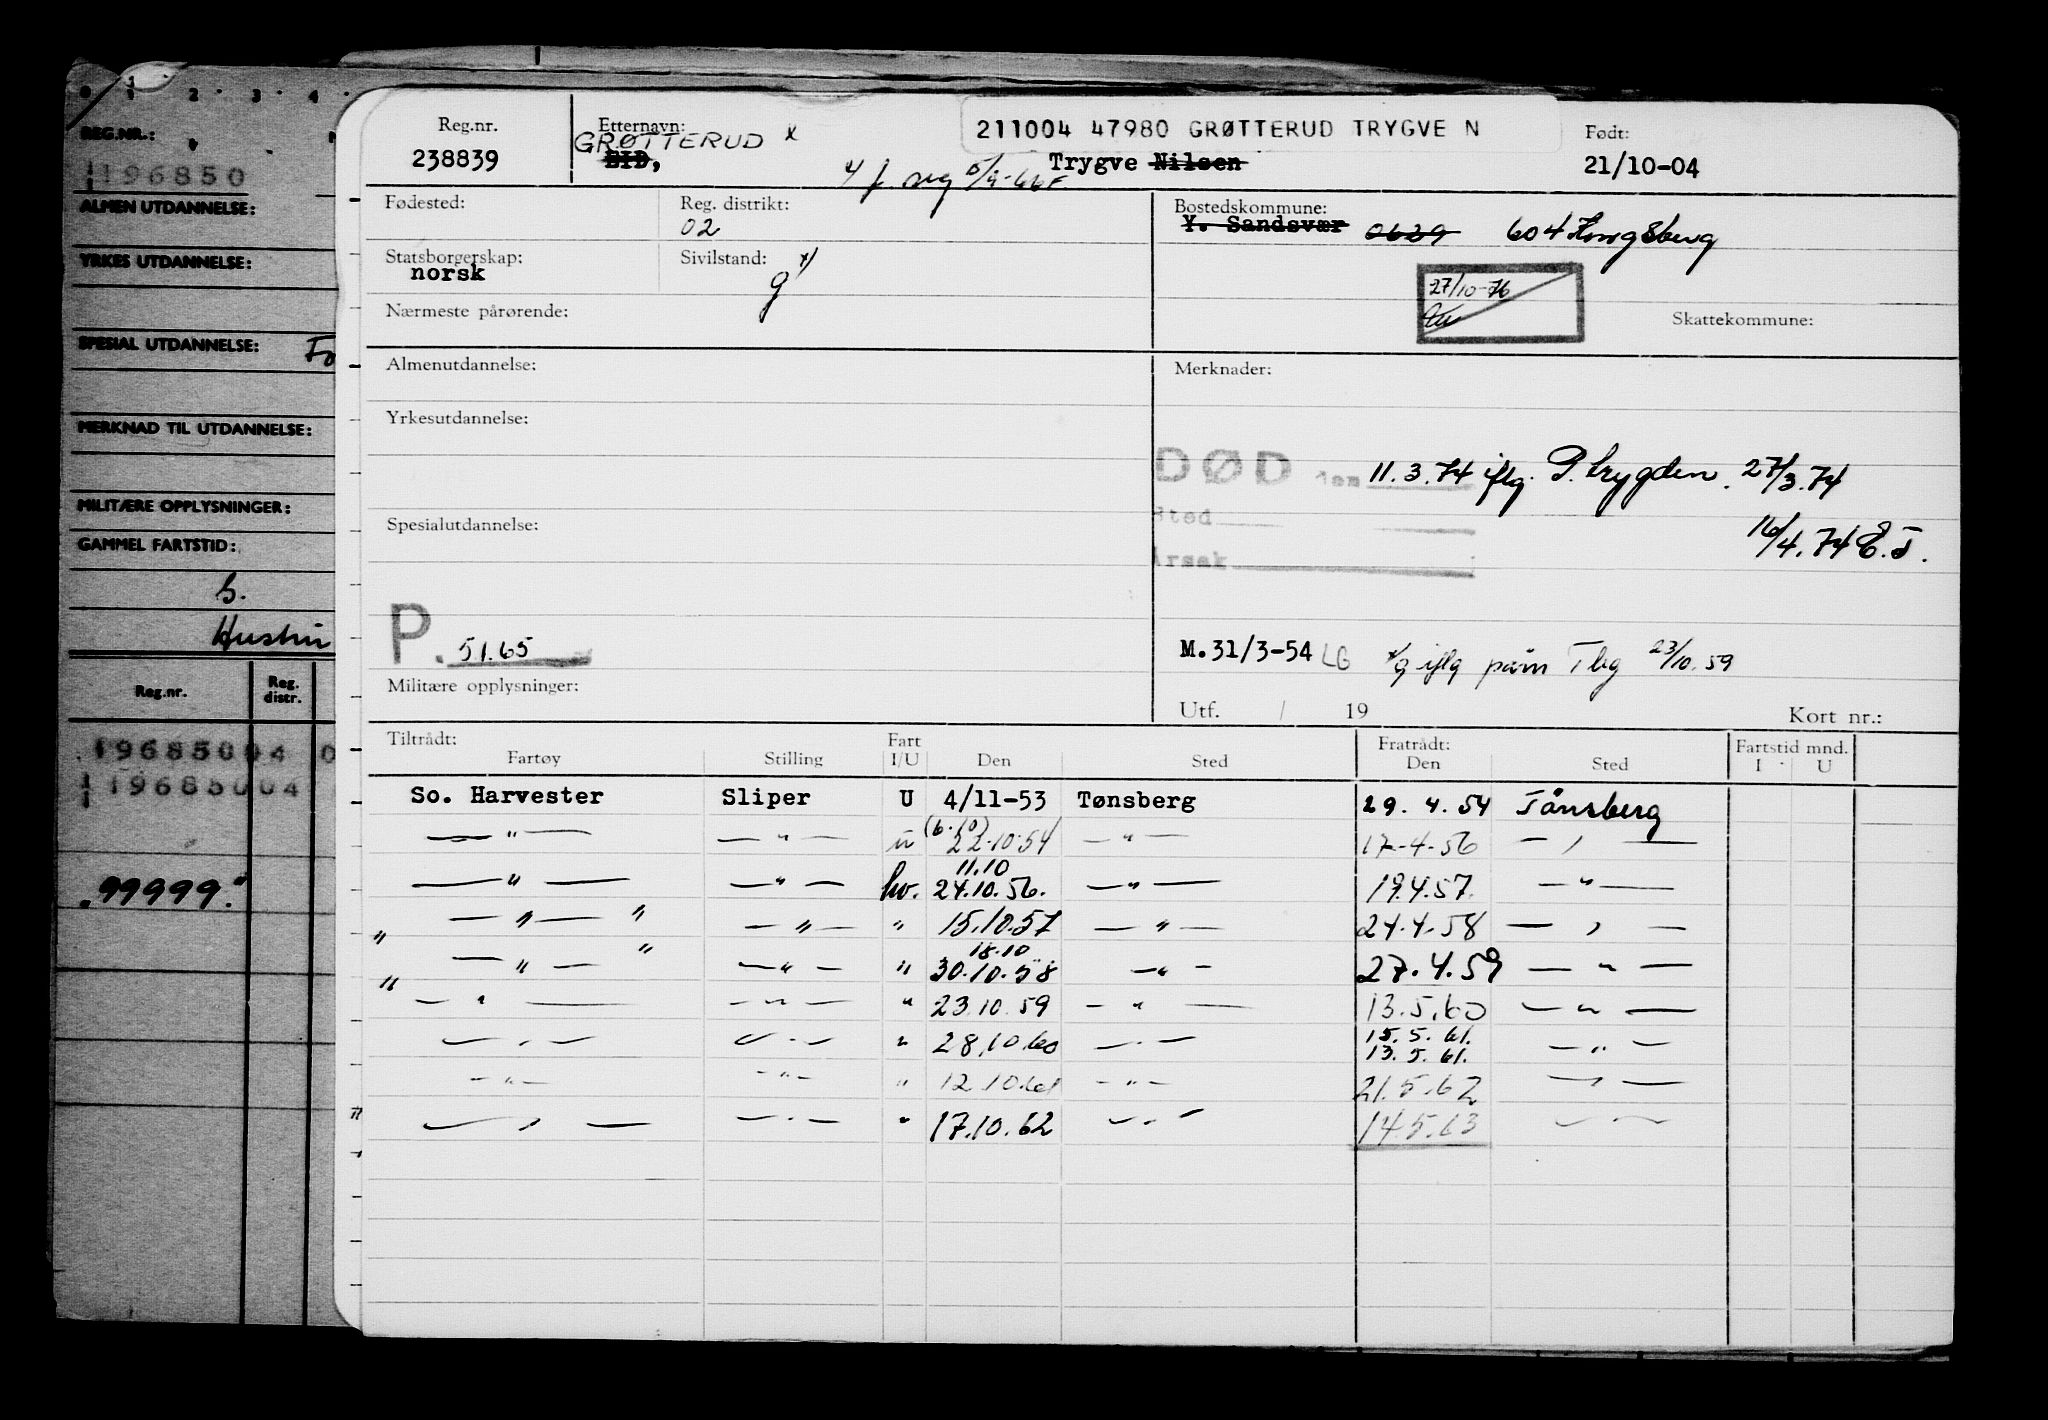 0 1 2 3 4
REG.NR.:
196850
ALMEN UTDANNELSE:
YRKES UTDANNELSE:
SPESIAL UTDANNELSE: Fo
MERKNAD TIL UTDANNELSE:
MILITÆRE OPPLYSNINGER:
GAMMEL FARTSTID:
S.
Hustru
Reg.nr. Reg. distr.
19685004 0
19685004
99999.
Reg.nr. Etternavn: 211004 47980 GRØTTERUD TRYGVE N Født:
238839 GRØTTERUD x Trygve Nilsen 21/10-04
EID,
Fødested: Reg. distrikt: Bostedskommune:
02 Y. Sandsvær 0629 604 Kongsberg
Statsborgerskap: Sivilstand: x)
norsk g
27/10-76
Nærmeste pårørende: Skattekommune:
Almenutdannelse: Merknader:
Yrkesutdannelse:
DØD den 11.3.74 iflg. P.trygden. 27/3.74
Sted
Spesialutdannelse: 16/4.74 E.J.
Årsak
P. 51.65 M.31/3-54 LG x/g iflg påm Tbg 23/10.59
Militære opplysninger:
Utf. / 19 Kort nr.:
Tiltrådt: Fart Fratrådt: Fartstid mnd.
Fartøy Stilling I/U Den Sted Den Sted I U
So. Harvester Sliper U 4/11-53 Tønsberg 29. 4. 54 Tønsberg
— " — — " — u (6.10) 22.10.54 — " — 17-4-56 — " —
11.10
— " — — " — hv. 24.10.56. — " — 19.4.57. — " —
" — " — " — " — " 15.10.57 — " — 24.4.58 — " —
18.10
" — " — " — " — " 30.10.58 — " — 27.4.59 — " —
— " — — " — " 23.10.59 — " — 13.5.60 — " —
15.5.61.
— " — — " — " 28.10.60 — " — 13.5.61. — " —
— " — — " — " 12.10.61 — " — 21.5.62 — " —
" — " — — " — " 17.10.62 — " — 14.5.63 — " —